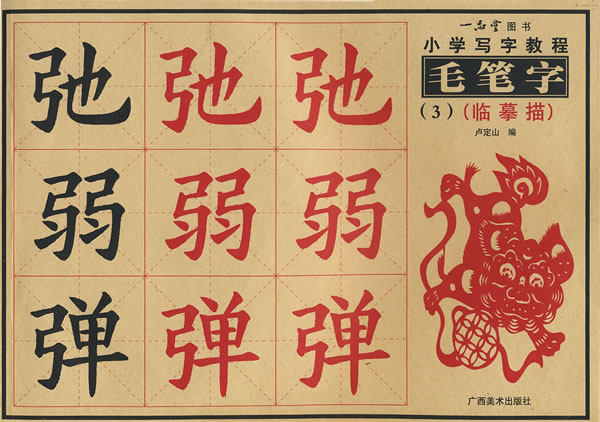 弛 弛 弛
弱 弱 弱
弹 弹 弹
一品堂图书
小学写字教程
毛笔字
(3)(临摹描)
卢定山 编
广西美术出版社